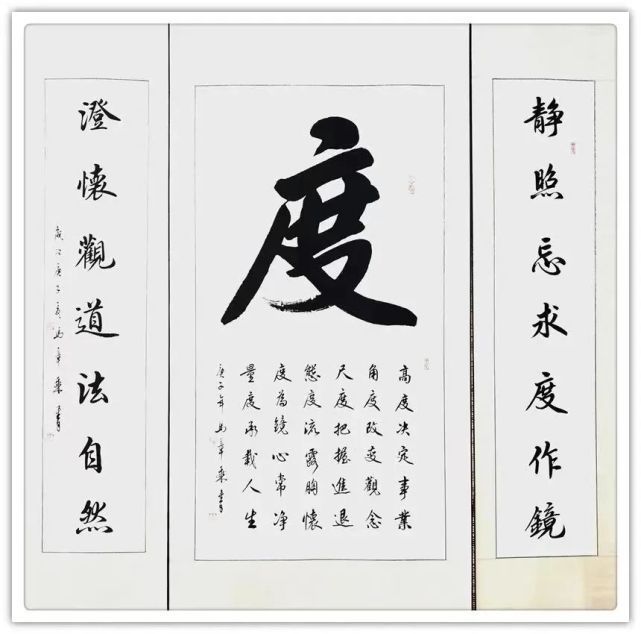 静照忘求度作鏡
度
高度决定事業
角度改变觀念
尺度把握進退
態度流露胸懷
度為鏡心常净
量度承載人生
庚子年馬章乘書
澄懷觀道法自然